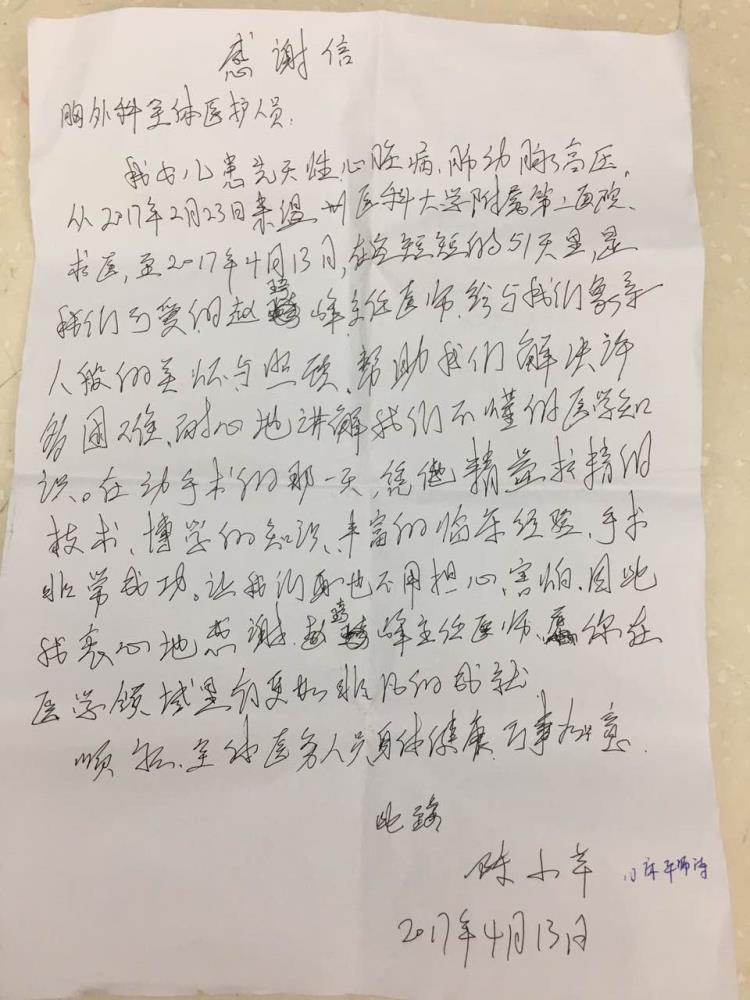 感谢信
胸外科全体医护人员:
我女儿患先天性心脏病、肺动脉高压,
从2017年2月23日来温州医科大学附属第二医院
求医,至2017年4月13日,在这短短的51天里,是
我们可爱的赵琦峰主任医师,给与我们象亲
人般的关怀与照顾、帮助我们解决许
多困难、耐心地讲解我们不懂的医学知
识。在动手术的那一天,凭他精益求精的
技术、博学的知识、丰富的临床经验,手术
非常成功。让我们再也不用担心、害怕。因此
我衷心地感谢赵琦峰主任医师、愿你在
医学领域里有更加非凡的成就
顺祝、全体医务人员身体健康、万事如意.
此致
陈小
2017年4月13日